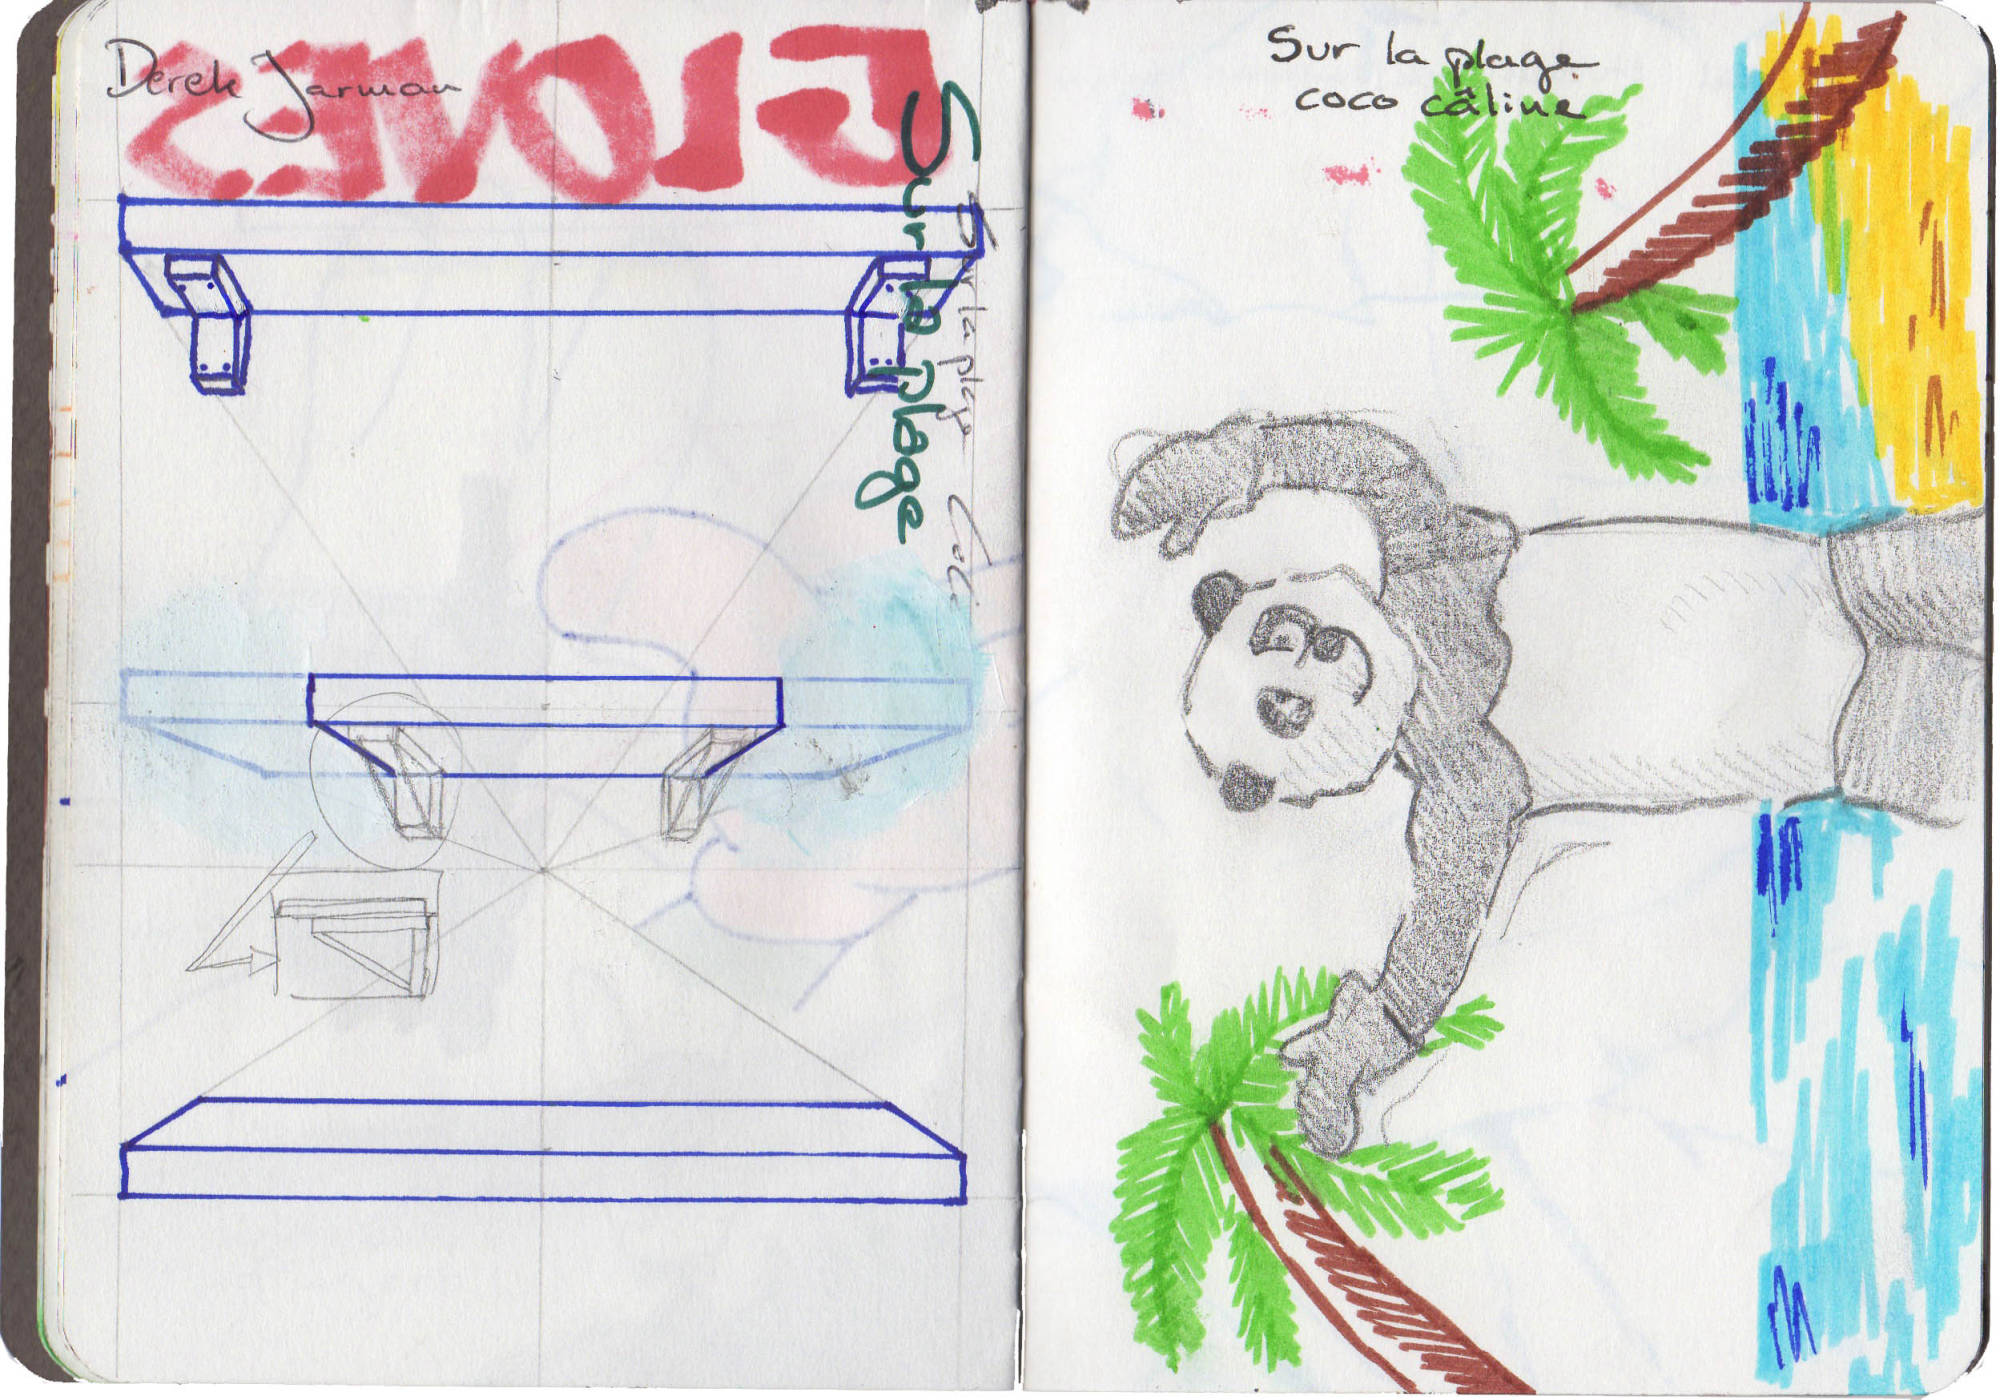 Derek Jarman
Sur la plage
Sur la plage Coco
Sur la plage
coco câline